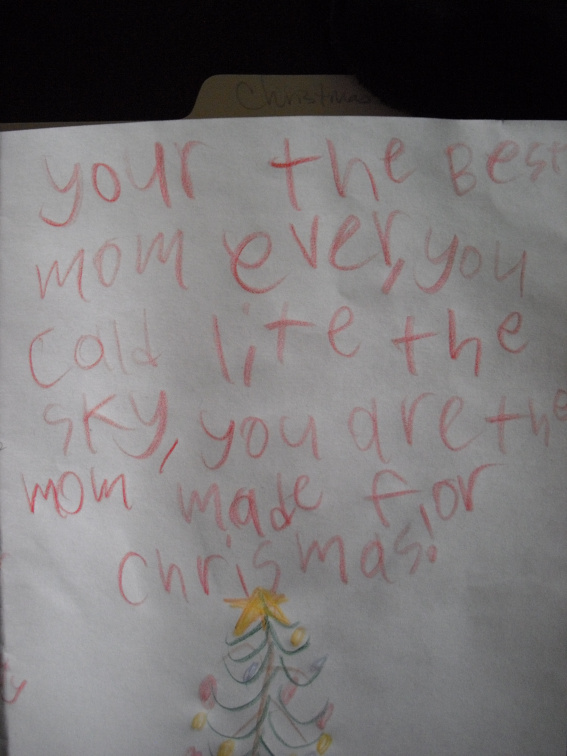 Christmas
your the Best
mom ever, you
cald lite the
sky, you are the
mom made for
chrismas!